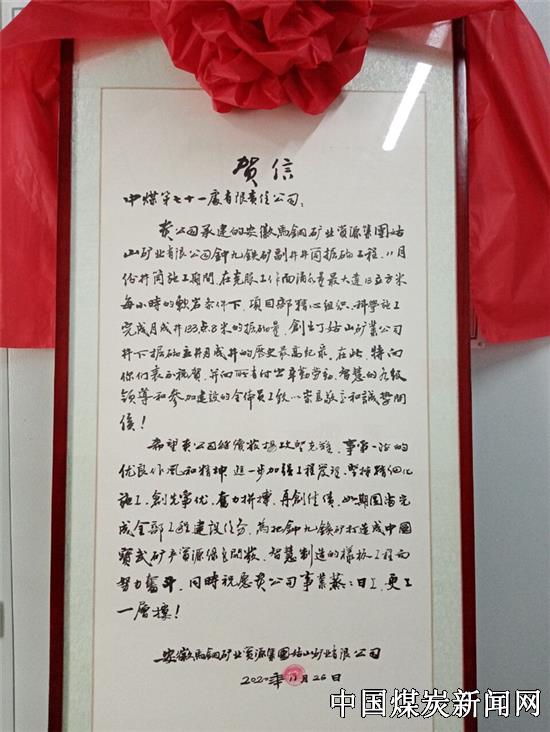 贺信
中煤第七十一处有限责任公司：
贵公司承建的安徽马钢矿业资源集团姑
山矿业有限公司钟九铁矿副井井筒掘砌工程，11月
份井筒施工期间，在克服工作面涌水量最大达15立方米
每小时的软岩条件下，项目部精心组织、科学施工
完成月成井133点8米的掘砌量，创出了姑山矿业公司
井下掘砌立井月成井的歷史最高纪录。在此，特向
你们表示祝贺，并向所有付出辛勤劳动、智慧的各级
领导和参加建设的全体员工致以崇高敬意和誠挚問
候！
希望贵公司继續發揚攻堅克難、事争一流的
优良作風和精神，进一步加强工程管理，堅持精細化
施工，創先争优，奮力拼搏，再創佳绩，如期圆满完
成全部工程建设任务，為把钟九铁矿打造成中國
寶武矿产资源保
智慧制造的樣板工程而
努力奮斗，同時祝愿贵公司事業蒸蒸日上，更上
一層樓！
安徽馬鋼矿业资源集團姑山矿业有限公司
2020年11月26日
中国煤炭新闻网